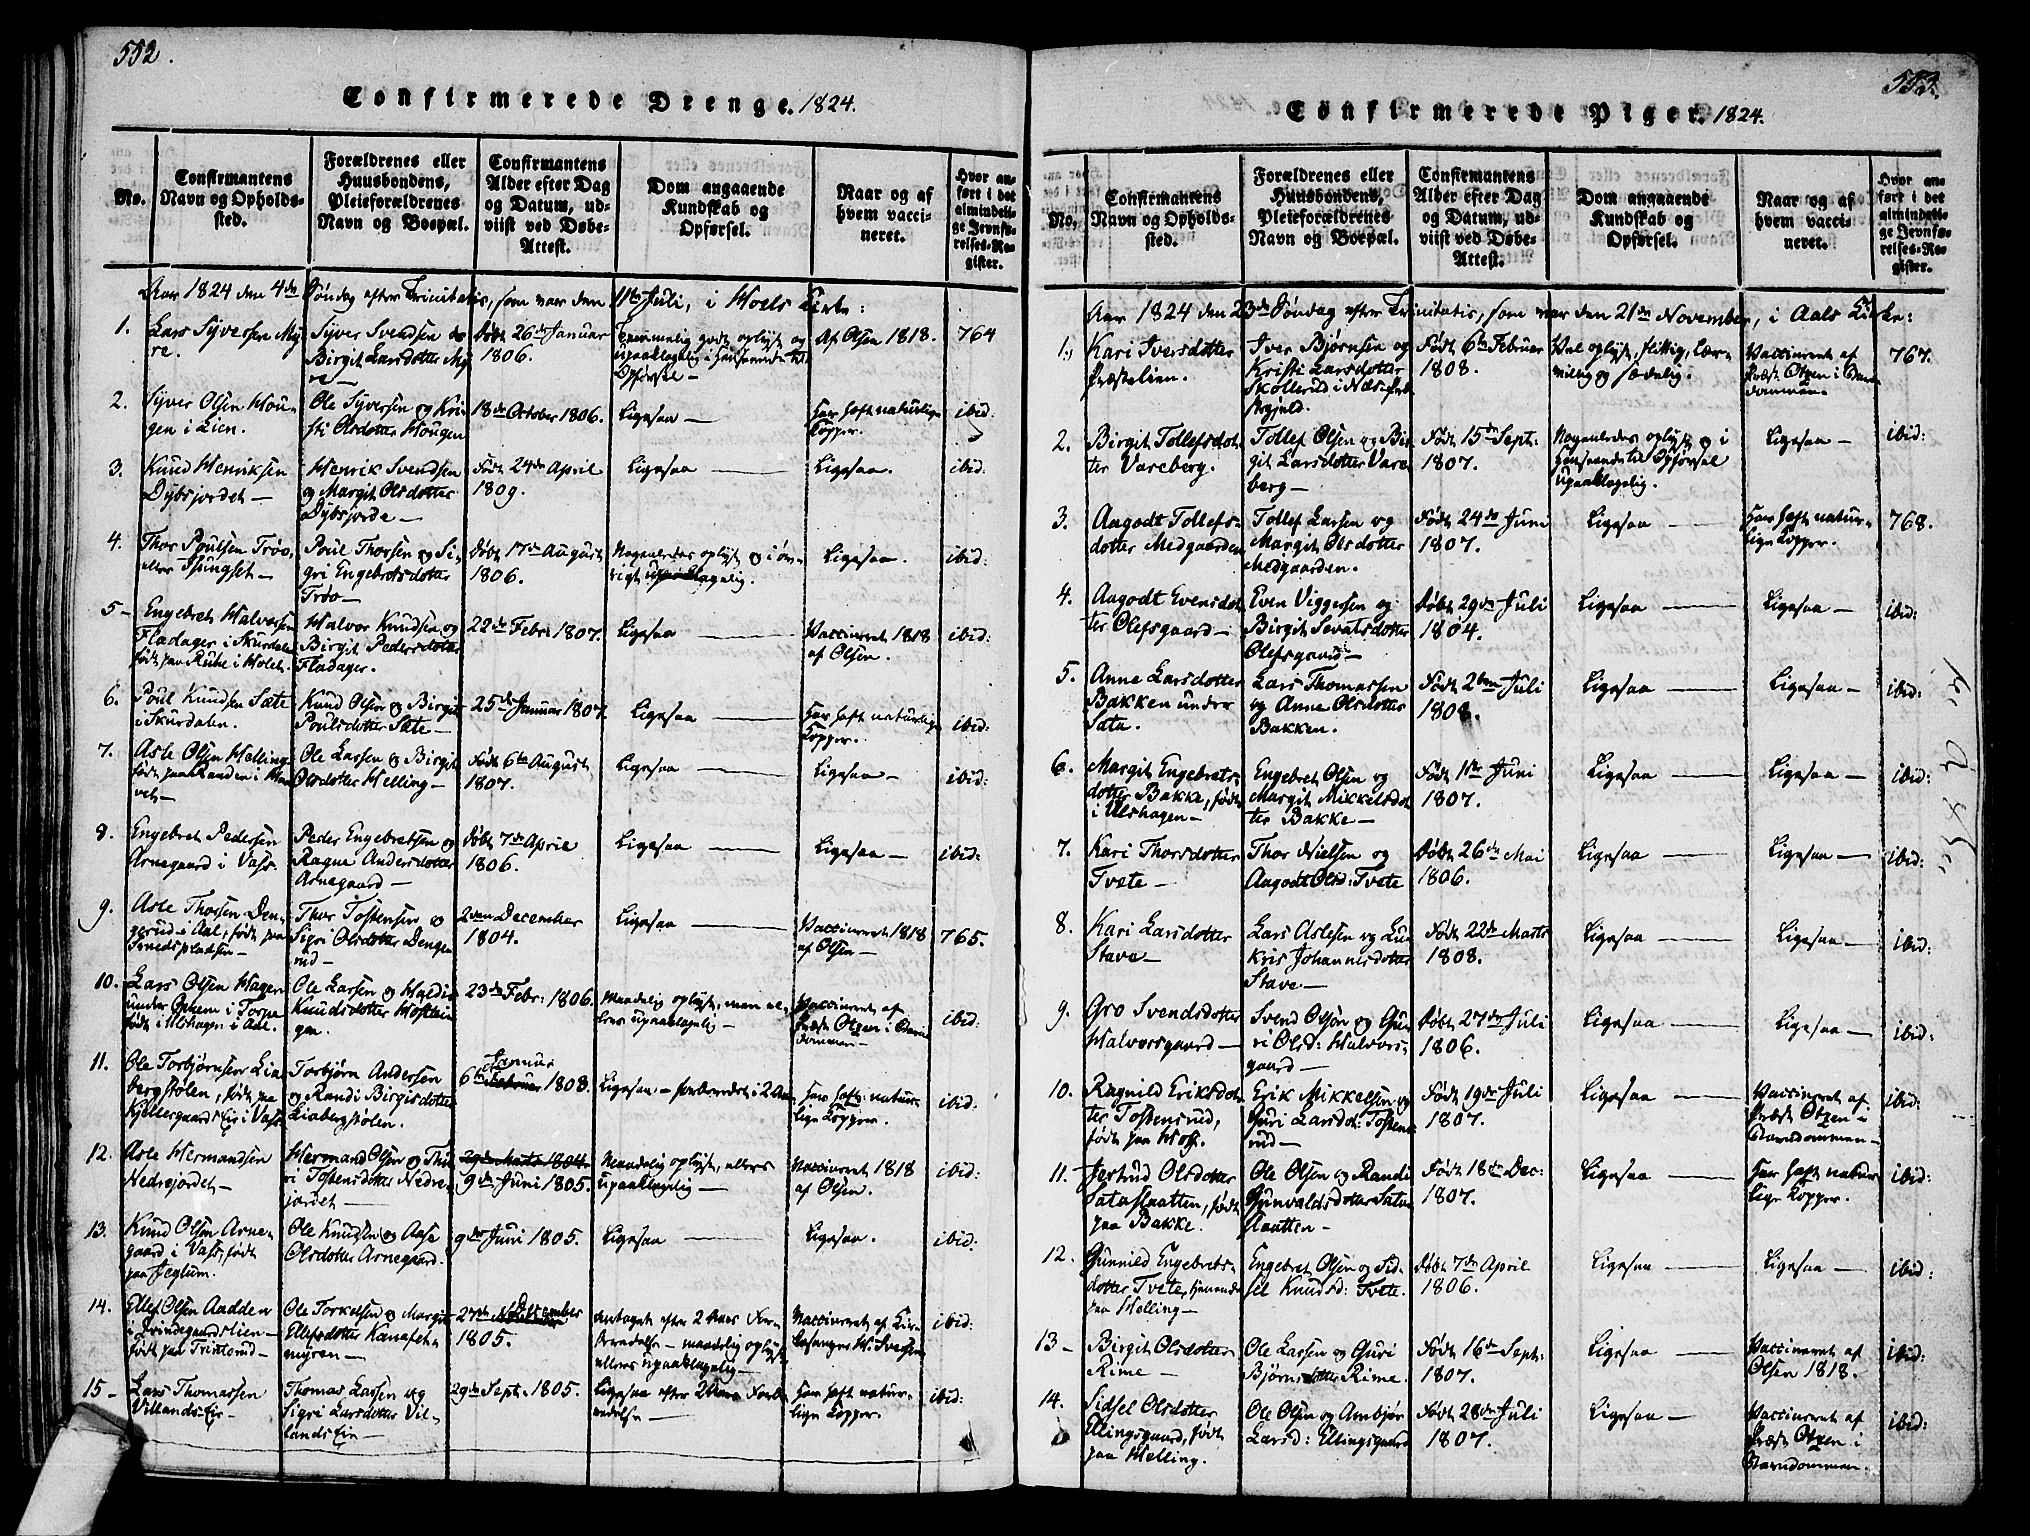 552.
Confirmerede Drenge. 1824.
No.
Confirmantens
Navn og Opholds-
sted.
Forældrenes eller
Huusbondens,
Pleieforældrenes
Navn og Boepæl.
Confirmantens
Alder efter Dag
og Datum, ud-
viist ved Døbe-
Attest.
Dom angaaende
Kundskab og
Opførsel.
Naar og af
hvem vacci-
neret.
Hvor an-
ført i det
almindeli-
ge Jevnfø-
relses-Re-
gister.
Aar 1824 den 4de Søndag efter Trinitatis, som var den 11te Juli, i Hols Kirke:
1.
Lars Syversen My-
re.
Syver Svendsen og
Birgit Larsdotter My-
re —
Døbt 26de Januar
1806.
Temmelig godt oplyst og
upaaklagelig i Henseende til
Opførsel —
Af Olsen 1818.
764
2.
Syver Olsen Hou-
gen i Lien.
Ole Syversen og Kri-
sti Olsdotter Hougen
18de October 1806.
Ligesaa —
Har haft naturlige
Kopper.
ibid:
3.
Knud Henriksen
Dybsjordet —
Henrik Svendsen
og Margit Olsdotter
Dybsjorde —
Født 24de April
1809.
Ligesaa —
Ligesaa.
ibid.
4.
Thor Poulsen Trøo,
eller Tjungset —
Poul Thorsen og Si-
gri Engebretsdotter
Trøo —
Døbt 17de August
1806.
Nogenledes oplyst og i øv-
rigt upaaklagelig.
Ligesaa.
ibid:
5 –
Engebret Halvorsen
Fladager i Skurdalen
født paa Rube i Holet.
Halvor Knudsen og
Birgit Pedersdotter
Fladager.
22de Febr: 1807.
Ligesaa —
Vaccineret 1818
af Olsen.
ibid:
6.
Poul Knudsen Sate
i Skurdalen.
Knud Olsen og Birgit
Poulsdotter Sate —
25de Januar 1807.
Ligesaa —
Har haft naturlige
Kopper.
ibid:
7.
Asle Olsen Helling
født paa Randen i Ho-
vet —
Ole Larsen og Birgit
Olsdotter Helling —
Født 6te August
1807.
Ligesaa —
Ligesaa —
ibid:
8.
Engebret Pedersen
Arnegaard i Vats.
Peder Engebretsen og
Ragne Andersdotter
Arnegaard —
Døbt 7de April
1806.
Ligesaa —
Ligesaa —
ibid:
9.
Asle Thorsen Den-
gerud i Aal, født paa
Smedspladsen —
Thor Tostensen og
Sigri Olsdotter Denge-
rud —
2den December
1804.
Ligesaa —
Vaccineret 1818
af Olsen —
765.
10.
Lars Olsen Hagen
under Ophem i Torpe
født i Ulshagen i Aal.
Ole Larsen og
Knudsdotter
gen.
23de Febr: 1806.
Maadelig oplyst, men el-
lers upaaklagelig —
Vaccineret af
Præst Otzen i Barn-
dommen —
ibid:
11.
Ole Torbjørnsen Lia-
bergstølen, født paa
Kjellergaards Eie i Vats
Torbjørn Andersen
og Randi Birgisdotter
Liabergstølen.
Januar
6te Februar 1808.
Ligesaa — forberedet i 2 Aar
Har haft natur-
lige Kopper.
ibid:
12.
Asle Hermandsen
Nedrejordet —
Hermand Olsen og Thu-
ri Tostensdotter Nedre-
jordet —
29de Marts 1804.
9de Juni 1805.
Maadelig oplyst, ellers
upaaklagelig —
Vaccineret 1818
af Olsen.
ibid:
13.
Knud Olsen Arne-
gaard i Vats, født
paa Jeglum.
Ole Knudsen og Aase
Olsdotter Arnegaard.
9de Juni 1805.
Ligesaa —
Ligesaa.
ibid:
14.
Ellef Olsen Aadden
født paa
Ole Torkelsen og Margit
Ellefsdotter
myren —
December
27de November
1805.
Antaget efter 2 Aars For-
beredelse — maadelig oplyst
ellers upaaklagelig —
Vaccineret af Kir-
kesanger H: Svendsen
ibid:
15 –
Lars Thomassen
Villands Eie —
Thomas Larsen og
Sigri Larsdotter Vil-
lands Eie —
29de Sept: 1805.
Ligesaa efter 2 Aars Forbe-
redelse —
Har haft natur-
lige Kopper.
ibid:
553.
Confirmerede Piger. 1824.
No.
Confirmantens
Navn og Opholds-
sted.
Forældrenes eller
Huusbondens,
Pleieforældrenes
Navn og Boepæl.
Confirmantens
Alder efter Dag
og Datum, ud-
viist ved Døbe-
Attest.
Dom angaaende
Kundskab og
Opførsel.
Naar og af
hvem vacci-
neret.
Hvor an-
ført i det
almindeli-
ge Jevnfø-
relses-Re-
gister.
Aar 1824 den 23de Søndag efter Trinitatis, som var den 21de November, i Aals Kirke:
1.)
Kari Iversdotter
Præstelien.
Iver Bjørnsen og
Kristi Larsdotter
Skollerud i Næs Præ-
stegjeld.
Født 6te Februar
1808.
Vel oplyst, flittig, lær-
villig og sædelig.
Vaccineret af
Præst Otzen i Barn-
dommen.
767.
2.
Birgit Tollefsdot-
ter Vareberg.
Tollef Olsen og Bir-
git Larsdotter Vare-
berg —
Født 15de Sept:
1807.
Nogenledes oplyst og i
Henseende til Opførsel
upaaklagelig.
Ligesaa —
ibid:
3.
Aagodt Tollefs-
dotter Medgaarden
Tollef Larsen og
Margit Olsdotter
Medgaarden.
Født 24de Juni
1807.
Ligesaa —
Har haft natur-
lige Kopper.
768.
4.
Aagodt Evensdot-
ter Olefsgaard —
Even Viggersen og
Birgit Sevatsdotter
Olefsgaard —
Døbt 29de Juli
1804.
Ligesaa —
Ligesaa —
ibid:
5.
Anna Larsdotter
Bakken under
Sata.
Lars Thomassen
og Anne Olsdotter
Bakken.
Født 2den Juli
1808.
Ligesaa —
Ligesaa —
ibid:
6.
Margit Engebrets-
dotter Bakke, født
i Ulshagen —
Engebret Olsen og
Margit Mikkelsdot-
ter Bakke —
Født 11te Juni
1807.
Ligesaa —
Ligesaa —
ibid:
7.
Kari Thorsdotter
Tvete —
Thor Nielsen og
Aagodt Olsd: Tvete
Døbt 26de Mai
1806.
Ligesaa —
Ligesaa —
ibid:
8.
Kari Larsdotter
Stave —
Lars Aslesen og Lu-
kris Johannisdotter
Stave —
Født 22de Marts
1808.
Ligesaa —
Ligesaa —
ibid:
9.
Gro Svendsdotter
Halvorsgaard —
Svend Olsøn og Gu-
ri Olsd: Halvors-
gaard —
Døbt 27de Juli
1806.
Ligesaa —
Ligesaa —
ibid:
10.
Ragnild Eriksdot-
ter Tostensrud,
født paa Hoff.
Erik Mikkelsen og
Guri Larsdot: Tostens-
rud —
Født 19de Juli
1807.
Ligesaa —
Vaccineret af
Præst Otzen i
Barndommen —
ibid:
11.
Jertrud Olsdotter
Sataslaatten, født
paa Bakke.
Ole Olsen og Randi
Gunvaldsdotter Sata-
slaatten —
Født 18de Dec:
1807.
Ligesaa —
Har haft natur-
lige Kopper.
ibid:
12.
Gunnild Engebrets-
dotter Tvete, hjemme
paa Helling —
Engebret Olsen og Sid-
sel Knudsd: Tvete.
Døbt 7de April
1806.
Ligesaa —
Ligesaa —
ibid:
13 –
Birgit Olsdotter
Rime —
Ole Larsen og Guri
Bjørnsdotter Rime.
Født 16de Sept:
1807.
Ligesaa —
Vaccineret af
Olsen 1818.
ibid:
14.
Sidsel Olsdotter
Ellingsgaard, født
paa Helling.
Ole Olsen og Ambjør
Larsd: Ellingsgaard
Født 28de Juli
1807.
Ligesaa —
Vaccineret af
Præst Otzen i
Barndommen.
ibid: